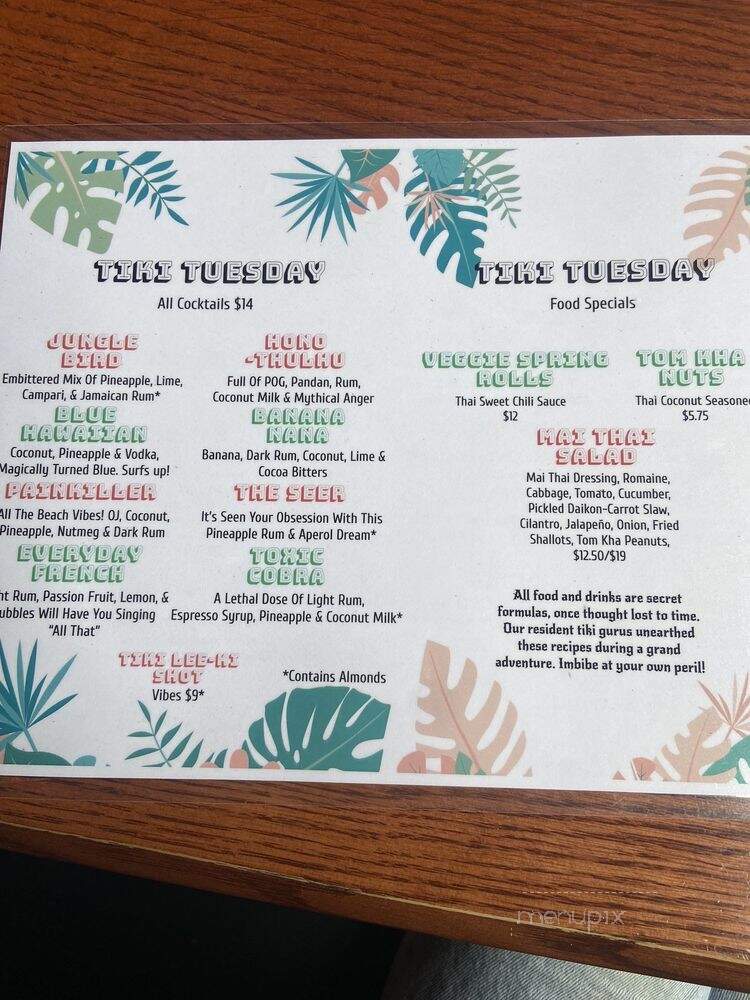 TIKI TUESDAY
All Cocktails $14
JUNGLE
BIRD
Embittered Mix Of Pineapple, Lime,
Campari, & Jamaican Rum*
BLUE
HAWAIIAN
Coconut, Pineapple & Vodka,
Magically Turned Blue. Surfs up!
PAINKILLER
All The Beach Vibes! OJ, Coconut,
Pineapple, Nutmeg & Dark Rum
EVERYDAY
FRENCH
Rum, Passion Fruit, Lemon, &
Will Have You Singing
"All That"
HONO
-THULHU
Full Of POG, Pandan, Rum,
Coconut Milk & Mythical Anger
BANANA
NANA
Banana, Dark Rum, Coconut, Lime &
Cocoa Bitters
THE SEER
It's Seen Your Obsession With This
Pineapple Rum & Aperol Dream*
TOXIC
COBRA
A Lethal Dose Of Light Rum,
Espresso Syrup, Pineapple & Coconut Milk*
TIKI LEE-KI
SHOT
Vibes $9*
*Contains Almonds
TIKI TUESDAY
Food Specials
VEGGIE SPRING
ROLLS
Thai Sweet Chili Sauce
$12
TOM KHA
NUTS
Thai Coconut Seasoned
$5.75
MAI THAI
SALAD
Mai Thai Dressing, Romaine,
Cabbage, Tomato, Cucumber,
Pickled Daikon-Carrot Slaw,
Cilantro, Jalapeño, Onion, Fried
Shallots, Tom Kha Peanuts,
$12.50/$19
All food and drinks are secret
formulas, once thought lost to time.
Our resident tiki gurus unearthed
these recipes during a grand
adventure. Imbibe at your own peril!
menupix